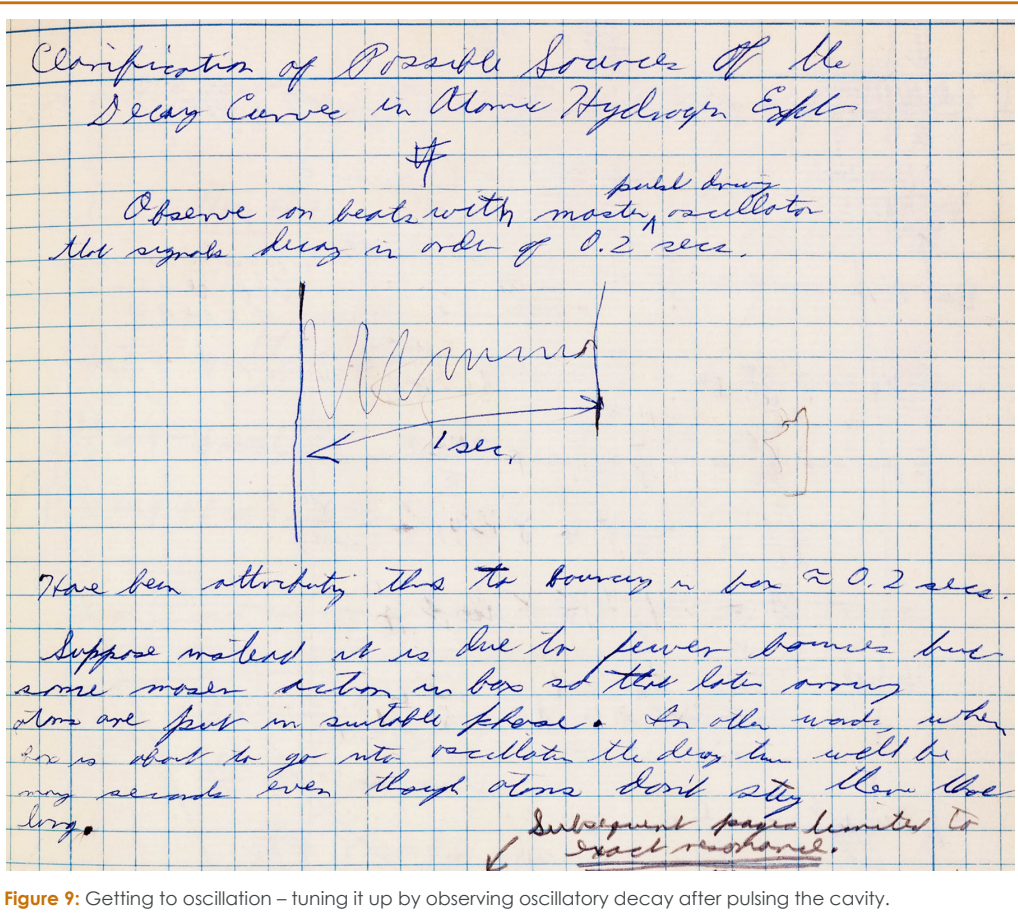 Clarification of Possible Sources Of the
Decay Curve in Atomic Hydrogen Expt
#
pulsd driving
Observe on beats with master ^ oscillator
that signals decay in order of 0.2 secs.
1 sec.
Have been attributing this to bouncing in box ≈ 0.2 secs.
Suppose instead it is due to fewer bounces but
some maser action in box so that later arriving
atoms are put in suitable phase. In other words, when
box is about to go into oscillation the decay time will be
many seconds even though atoms don't stay there that
long.
Subsequent pages limited to
exact resonance.
Figure 9: Getting to oscillation – tuning it up by observing oscillatory decay after pulsing the cavity.